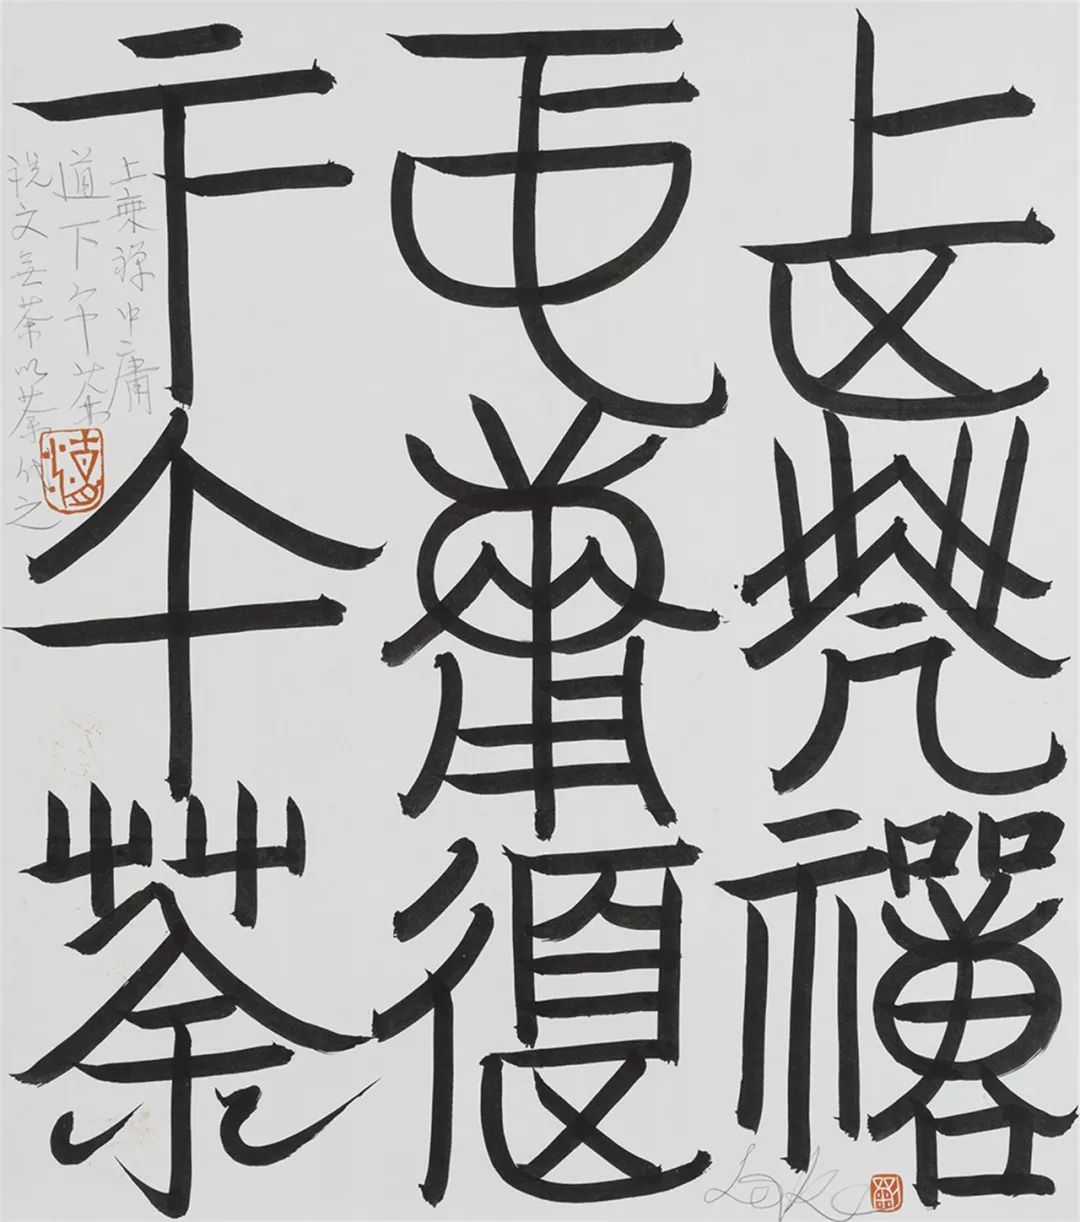 上乘禪
中庸道
下午荼
上乘禅中庸
道下午茶
说文无茶以荼代之